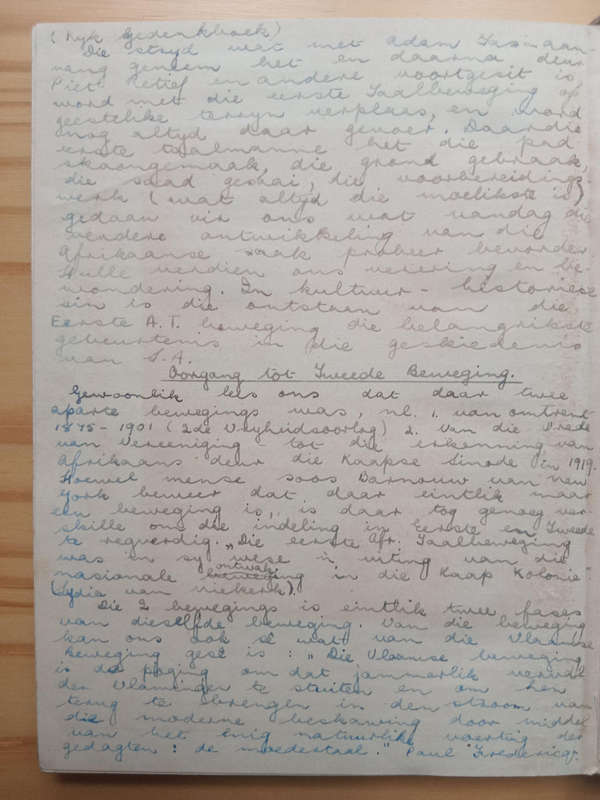 (Kyk Gedenkboek)
Die stryd wat met Adam Tas 'n aan-
vang geneem het en daarna deur
Piet Retief en andere voortgesit is
word met die eerste Taalbeweging op
geestelike terryn verplaas, en word
nog altyd daar gevoer. Daardie
eerste taalmanne het die pad
skoongemaak, die grond gebraak,
die saad gesaai, die voorbereidings-
werk (wat altyd die moeilikste is)
gedaan vir ons wat vandag die
verdere ontwikkeling van die
Afrikaanse saak probeer bevorder
Hulle verdien ons verering en be-
wondering. In kultuur-historiese
sin is die ontstaan van die
Eerste A.T. beweging die belangrikste
gebeurtenis in die geskiedenis
van S.A.
Oorgang tot Tweede Beweging.
Gewoonlik lees ons dat daar twee
aparte bewegings was, nl. 1. van omtrent
1875-1901 (2de Vryheidsoorlog) 2. Van die Vrede
van Vereeniging tot die erkenning van
Afrikaans deur die Kaapse Sinode in 1919.
Hoewel mense soos Barnouw van New
York beweer dat daar eintlik maar
een beweging is, is daar tog genoeg ver
skille om die indeling in Eerste en Tweede
te regverdig. „Die eerste Afr. Taalbeweging
was in sy wese 'n uiting van die
nasionale ontwaking in die Kaap Kolonie"
(Lydia van Niekerk).
Die 2 bewegings is eintlik twee fases
van dieselfde beweging. Van die beweging
kan ons ook sê wat van die Vlaamse
Beweging gesê is: „Die Vlaamse beweging
is de poging om dat jammerlik verval
der Vlamingen te stuiten en om hen
terug te brengen in den stroom van
die moderne beskawing door middel
van het enig natuurlike voertuig der
gedagten: de moedertaal." Paul Fredericq.